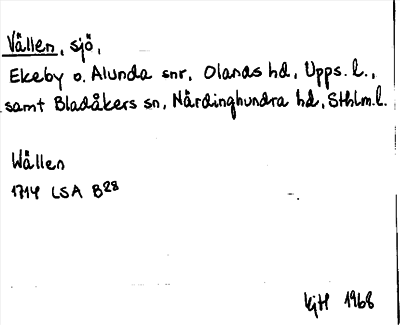 Vällen, sjö,
Ekeby o. Alunda snr, Olands hd, Upps. l.,
samt Bladåkers sn, Närdinghundra hd, Sthlm. l.
Wällen
1714 LSA B28
KjH 1968